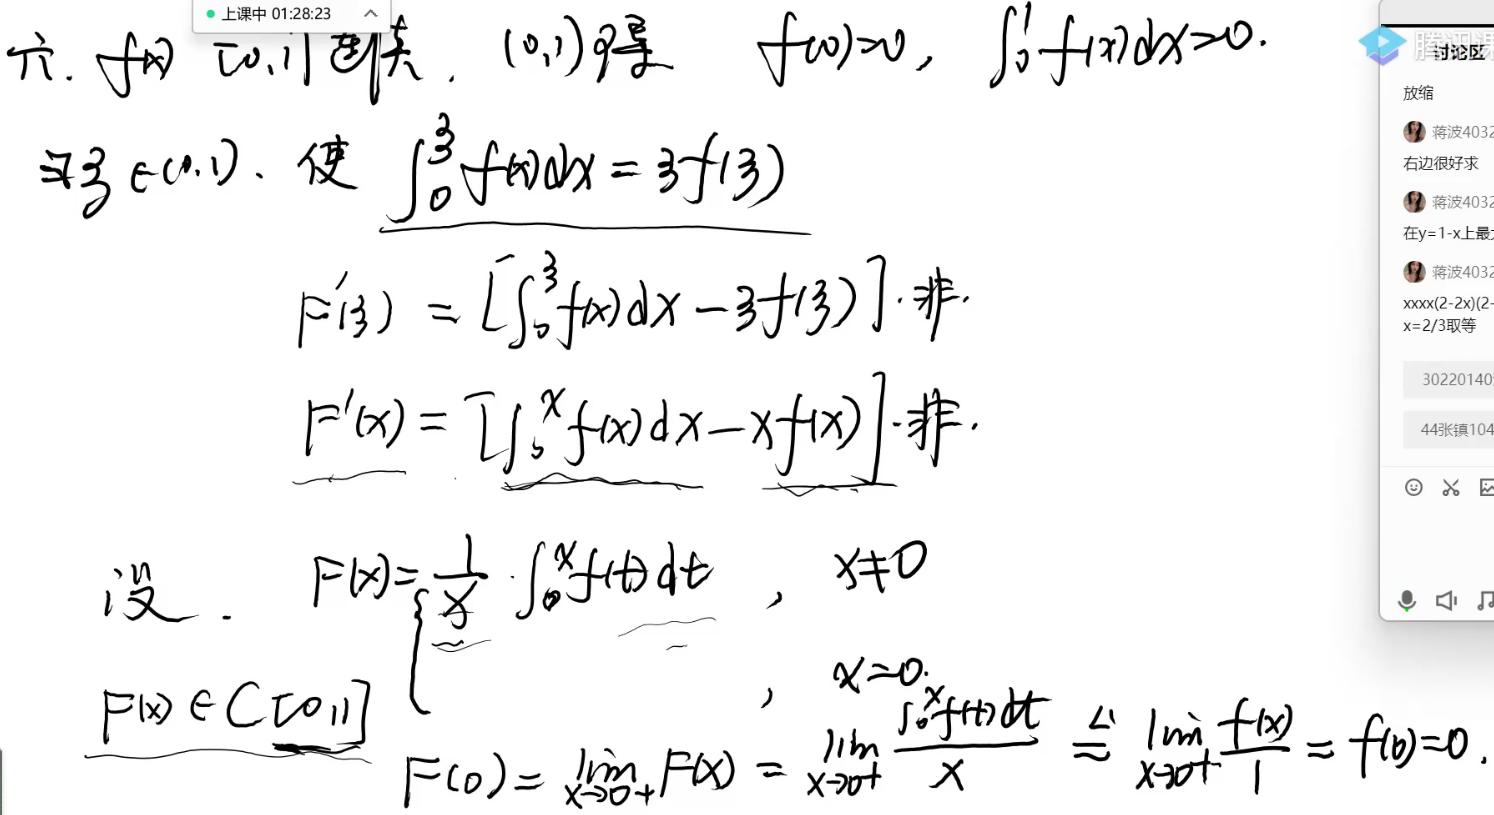 上课中 01:28:23
六. f(x) [0,1]连续. (0,1)可导 f(0)=0, ∫₀¹f(x)dx=0.
∃ξ∈(0,1). 使 ∫₀^ξ f(x)dx = ξf(ξ)
F'(ξ) = [∫₀^ξ f(x)dx - ξf(ξ)]·非.
F'(x) = [∫₀^x f(x)dx - xf(x)]·非.
设. F(x)= { 1/x · ∫₀^x f(t)dt , x≠0
, x=0.
F(x)∈C[0,1]
F(0) = lim_{x→0+} F(x) = lim_{x→0+} ∫₀^x f(t)dt / x =^{L'} lim_{x→0+} f(x)/1 = f(0)=0.
腾讯课
讨论区
放缩
蒋波4032
右边很好求
蒋波4032
在y=1-x上最
蒋波4032
xxxx(2-2x)(2-
x=2/3取等
30220140
44张镇104